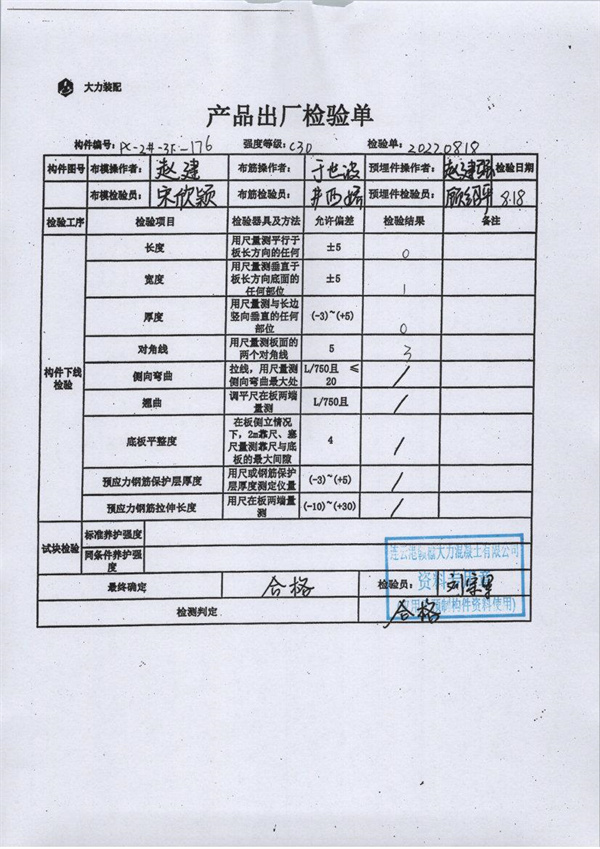 大力装配
产品出厂检验单
构件编号: PC-2#-3F-176 强度等级: C30 检验单: 20220818
构件图号 布模操作者: 赵建 布筋操作者: 于世波 预埋件操作者: 赵建强 检验日期
布模检验员: 宋欣颖 布筋检验员: 预埋件检验员: 8.18
检验工序 检验项目 检验器具及方法 允许偏差 检验结果 备注
构件下线检验
长度 用尺量测平行于板长方向的任何 ±5 0
宽度 用尺量测垂直于板长方向底面的任何部位 ±5 1
厚度 用尺量测与长边竖向垂直的任何部位 (-3)~(+5) 0
对角线 用尺量测板面的两个对角线 5 3
侧向弯曲 拉线，用尺量测侧向弯曲最大处 L/750且 ≤20 /
翘曲 调平尺在板两端量测 L/750且 /
底板平整度 在板侧立情况下，2m靠尺、塞尺量测靠尺与底板的最大间隙 4 /
预应力钢筋保护层厚度 用尺或钢筋保护层厚度测定仪量 (-3)~(+5) /
预应力钢筋拉伸长度 用尺在板两端量测 (-10)~(+30) /
试块检验 标准养护强度
同条件养护强度
最终确定 合格 检验员:
检测判定 合格
连云港赣榆大力混凝土有限公司
资料专用章
预制构件资料使用)